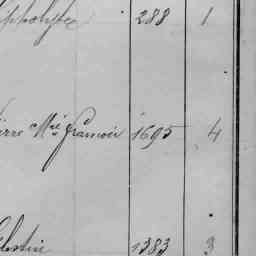 ippolyte 288 1
ierre Mie francois 1695 4
élestin 1383 3